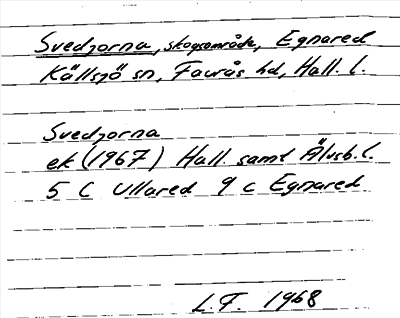 Svedjorna, skogsområde, Egnared
Källsjö sn, Faurås hd, Hall. l.
Svedjorna
ek (1967) Hall. samt Älvsb. l.
5 C Ullared 9 c Egnared
L.F. 1968